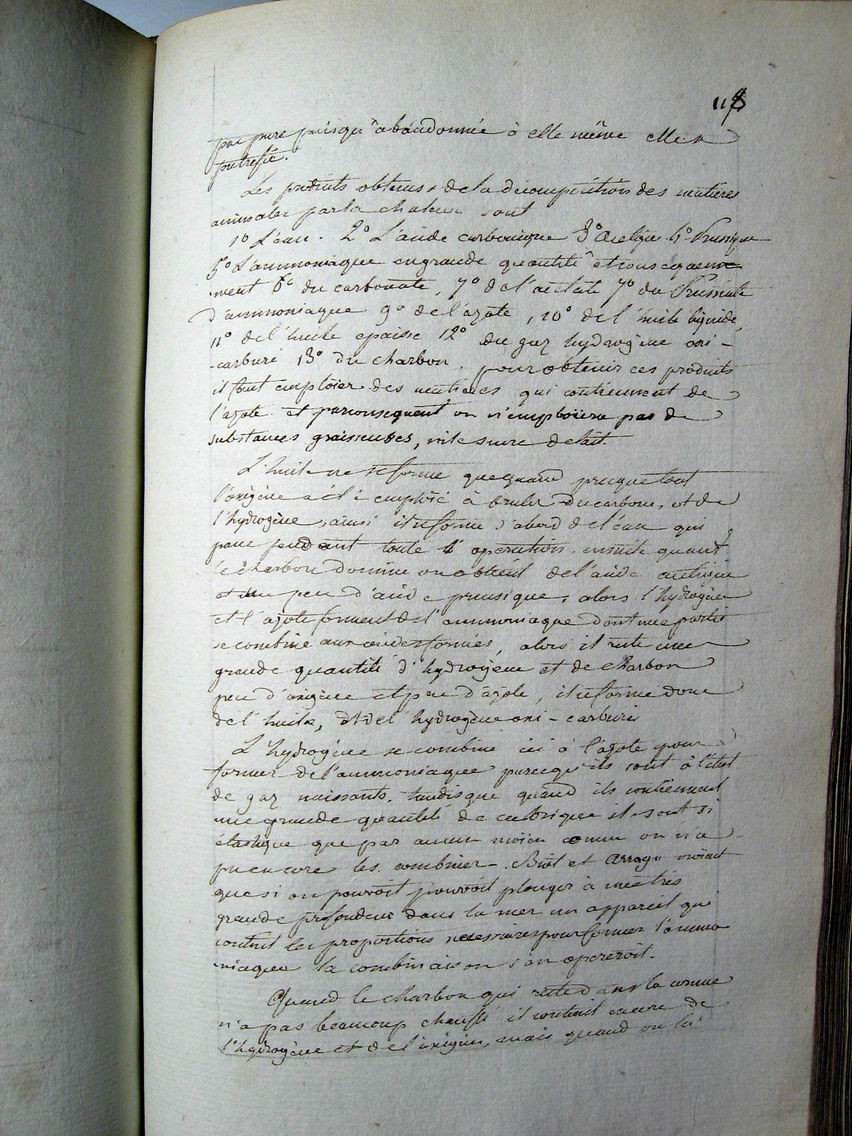 118
pas pure puisqu'abandonnée à elle même elle a
putrefié.
Les produits obtenus de la décomposition des matières
animales par la chaleur sont
1° L'eau. 2° L'acide carbonique 3° acetique 4° Prussique
5° L'ammoniaque en grande quantité et consequem-
ment 6° du carbonate, 7° de l'acetate 7° du Prussiate
d'ammoniaque 9° de l'azote, 10° de l'huile liquide,
11° de l'huile epaisse 12° du gaz hydrogène oxi-
carburé 13° du charbon. pour obtenir ces produits
il faut emploier des matieres qui contiennent de
l'azote et par consequent on n'emploiera pas de
substances graisseuses, ni le sucre de lait.
L'huile ne se forme que quand presque tout
l'oxigène a été emploié à bruler du carbone, et de
l'hydrogène, ainsi il se forme d'abord de l'eau qui
passe pendant toute l'operation. ensuite quand
le charbon domine on obtient de l'acide acetique
et un peu d'acide prussique, alors l'hydrogène
et l'azote forment de l'ammoniaque dont une partie
se combine aux acides formés, alors il reste une
grande quantité d'hydrogène et de charbon
peu d'oxigène et peu d'azote, il se forme donc
de l'huile, et de l'hydrogène oxi-carburé
L'hydrogène se combine ici à l'azote pour
former de l'ammoniaque parcequ'ils sont à l'état
de gaz naissants, tandis que quand ils contiennent
une grande quantité de calorique ils sont si
élastique que par aucun moien connu on n'a
pu encore les combiner. Biot et Arrago croient
que si on pouvoit pouvoit plonger à une très
grande profondeur dans la mer un appareil qui
contint les proportions necessaires pour former l'ammo
niaque la combinaison s'en opereroit.
Quand le charbon qui reste dans la cornue
n'a pas beaucoup chauffé il contient encore de
l'hydrogène et de l'oxigène, mais quand on lui